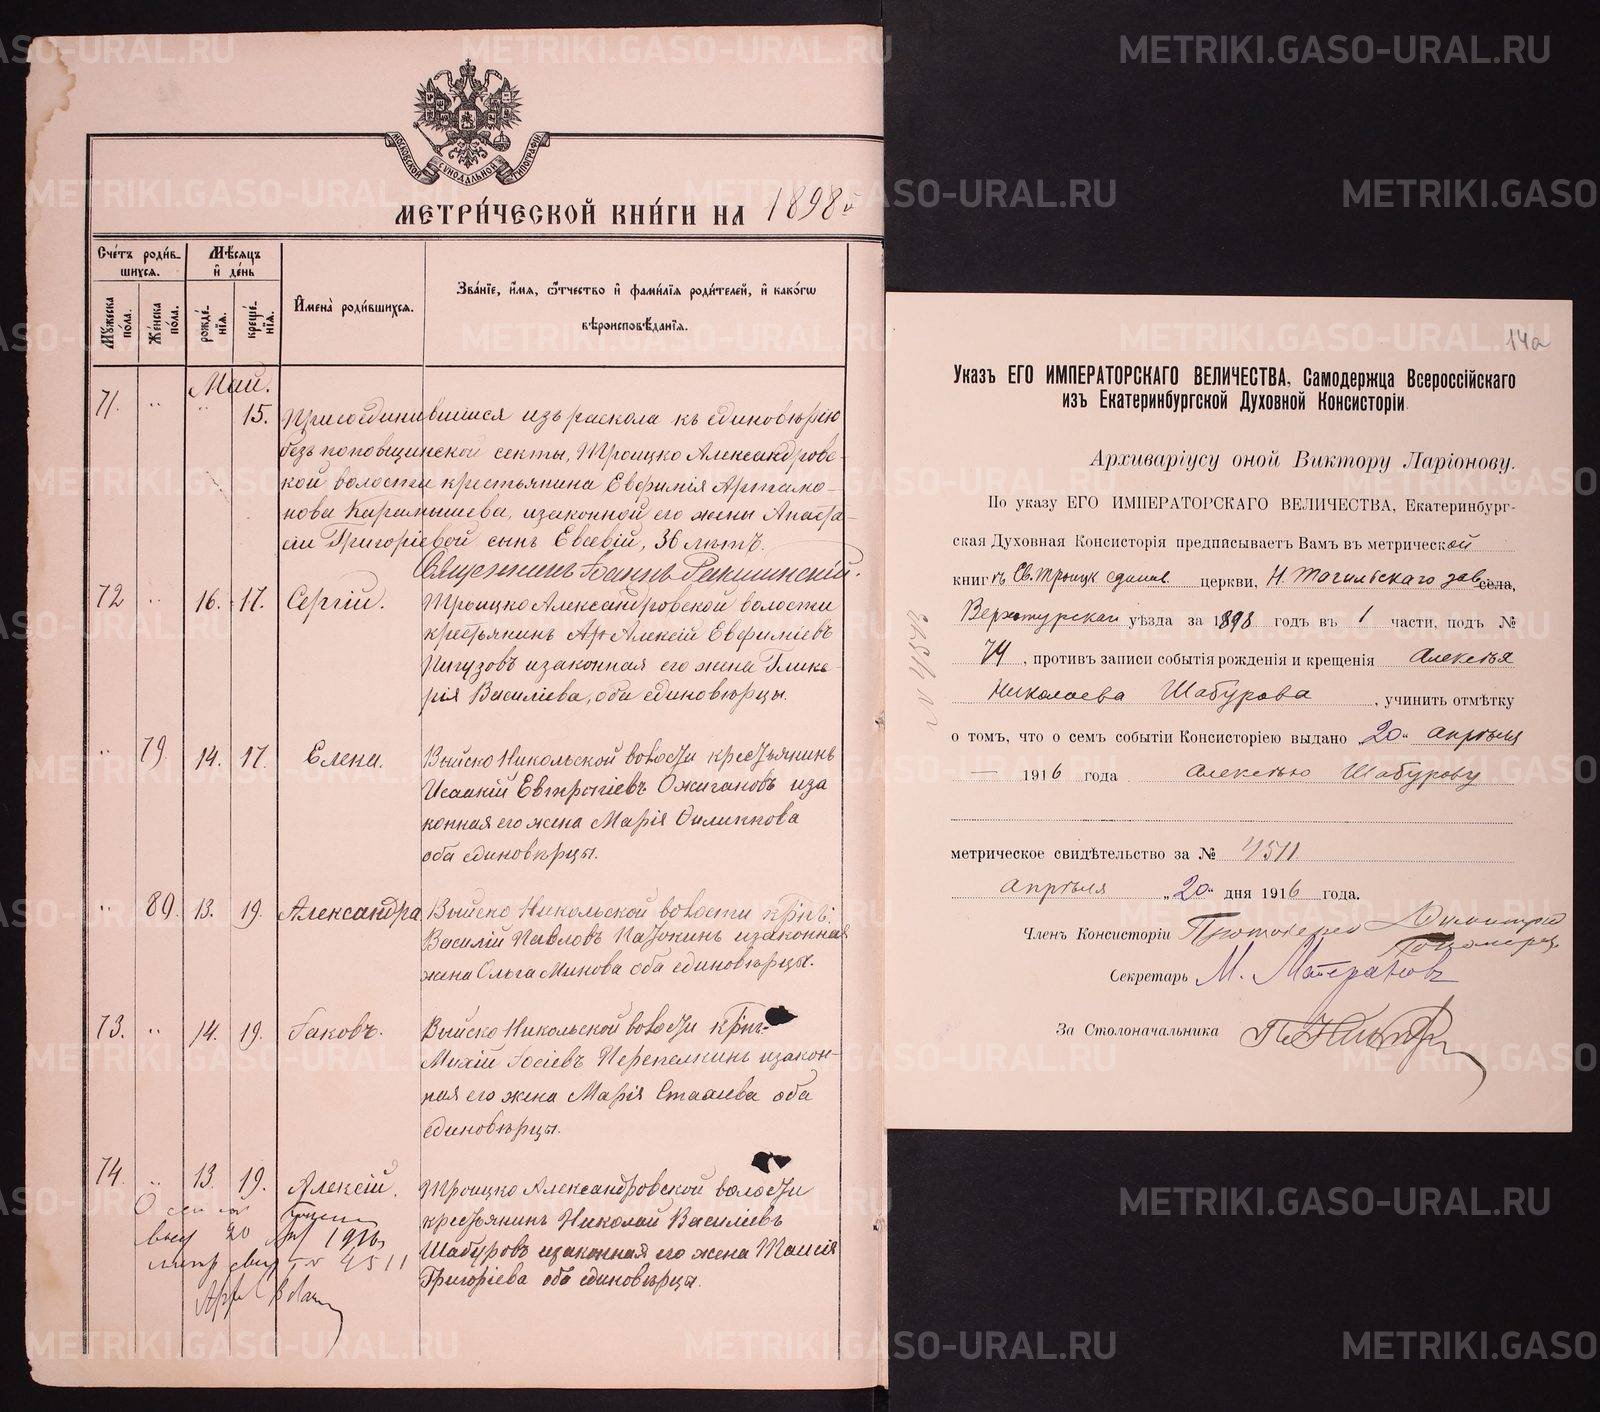 МОСКОВСКОЙ СѴНОДАЛЬНОЙ ТИПОГРАФІИ
МЕТРИ́ЧЕСКОЙ КНИ́ГИ НА 1898й
Сче́тъ роди́вшихся.
Мѣ́сяцъ и́ де́нь
И҆мена̀ роди́вшихся.
Зва́нїе, и҆́мя, ѻ҆́тчество и҆ фами́лїя роди́телей, и҆ како́гѡ вѣроисповѣ́данїя.
Мꙋ́жеска по́ла.
Же́нска по́ла.
рожде́нїя.
креще́нїя.
Май.
71. " " 15. Присоединившiйся изъ раскола къ единовѣрію
безпоповщинской секты, Троицко Александровс-
кой волости крестьянина Евфимія Артамо-
нова Карамышева, и законной его жены Анаста-
сіи Григоріевой сынъ Евсевій, 36 лѣтъ.
Священникъ Іоаннъ
72 " 16. 17. Сергій. Троицко Александровской волости
крестьянинъ Алексій Евфиміевъ
Пигузовъ и законная его жена Глике-
рія Василіева, оба единовѣрцы.
" 79. 14. 17. Елена. Выйско Никольской волости крестьянинъ
Исаакій Евтропіевъ Ожигановъ и за
конная его жена Марія Филиппова
оба единовѣрцы.
" 80. 13. 19. Александра Выйско Никольской волости крѣнъ:
Василій Павловъ Патокинъ и законная
жена Ольга Минова оба единовѣрцы.
73. " 14. 19. Іаковъ. Выйско Никольской волости
Перепелкинъ и закон-
ная его жена Марія оба
единовѣрцы.
74. " 13. 19. Алексій. Троицко Александровской волости
крестьянинъ Николай Василіевъ
Шабуровъ и законная его жена Таисія
Григоріева оба единовѣрцы.
О сем
выд 20 Апр 1916
метр свид № 4511
14а
Указъ ЕГО ИМПЕРАТОРСКАГО ВЕЛИЧЕСТВА, Самодержца Всероссійскаго
изъ Екатеринбургской Духовной Консисторіи
Архиваріусу оной Виктору Ларіонову.
По указу ЕГО ИМПЕРАТОРСКАГО ВЕЛИЧЕСТВА, Екатеринбург-
ская Духовная Консисторія предписываетъ Вамъ въ метрической
книгѣ Св. Троицк единов. церкви, Н. Тагильскаго зав села,
Верхотурскаго уѣзда за 1898 годъ въ 1 части, подъ №
74, противъ записи событія рожденія и крещенія Алексѣя
Николаева Шабурова, учинить отмѣтку
о томъ, что о семъ событіи Консисторіею выдано „20“ апрѣля
— 1916 года Алексѣю Шабурову
метрическое свидѣтельство за № 4511
апрѣля „20“ дня 1916 года.
Членъ Консисторіи Протоіерей
Секретарь М.
За Столоначальника
METRIKI.GASO-URAL.RU